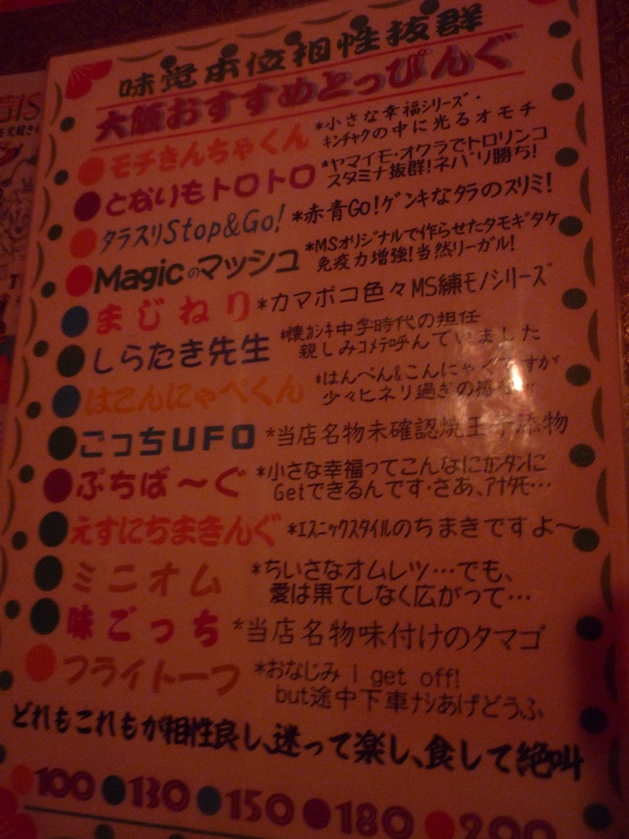 味覚本位相性抜群
大阪おすすめとっぴんぐ
モチきんちゃくん *小さな幸福シリーズ・
キンチャクの中に光るオモチ
となりもトロトロ *ヤマイモ・オクラでトロリンコ
スタミナ抜群!ネバリ勝ち!
タラスリStop&Go! *赤青GO!ゲンキなタラのスリミ!
Magicのマッシュ *MSオリジナルで作らせたタモギタケ
免疫力増強!当然リーガル!
まじねり *カマボコ色々MS練モノシリーズ
しらたき先生 *懐カシキ中学時代の担任
親しみコメテ呼んでいました
はこんにゃぺくん *はんぺん&こんにゃくですが
少々ヒネリ過ぎの感
ごっちUFO *当店名物未確認焼玉子添物
ぷちば〜ぐ *小さな幸福ってこんなにカンタンに
Getできるんです・さあ、アナタモ…
えすにちまきんぐ *エスニックスタイルのちまきですよ〜
ミニオム *ちいさなオムレツ…でも、
愛は果てしなく広がって…
味ごっち *当店名物味付けのタマゴ
フライトーフ *おなじみ i get off!
but途中下車ナシあげどうふ
どれもこれもが相性良し、迷って楽し、食して絶叫
100 130 150 180 200